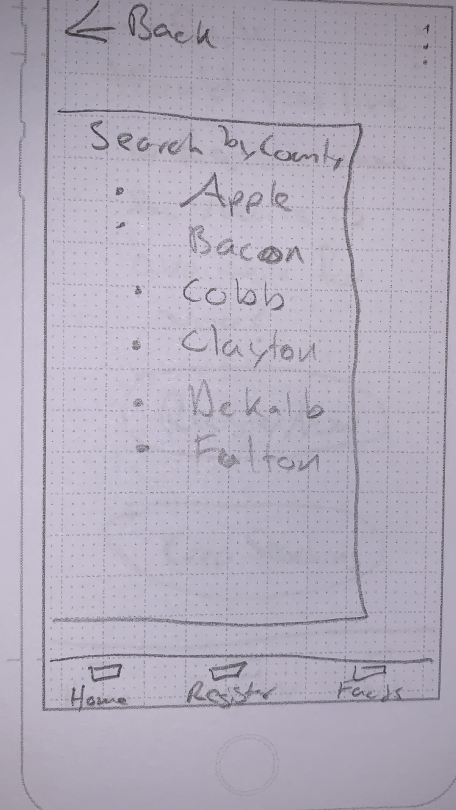 Back
Search by County
Apple
Bacon
Cobb
Clayton
Dekalb
Fulton
Home Register